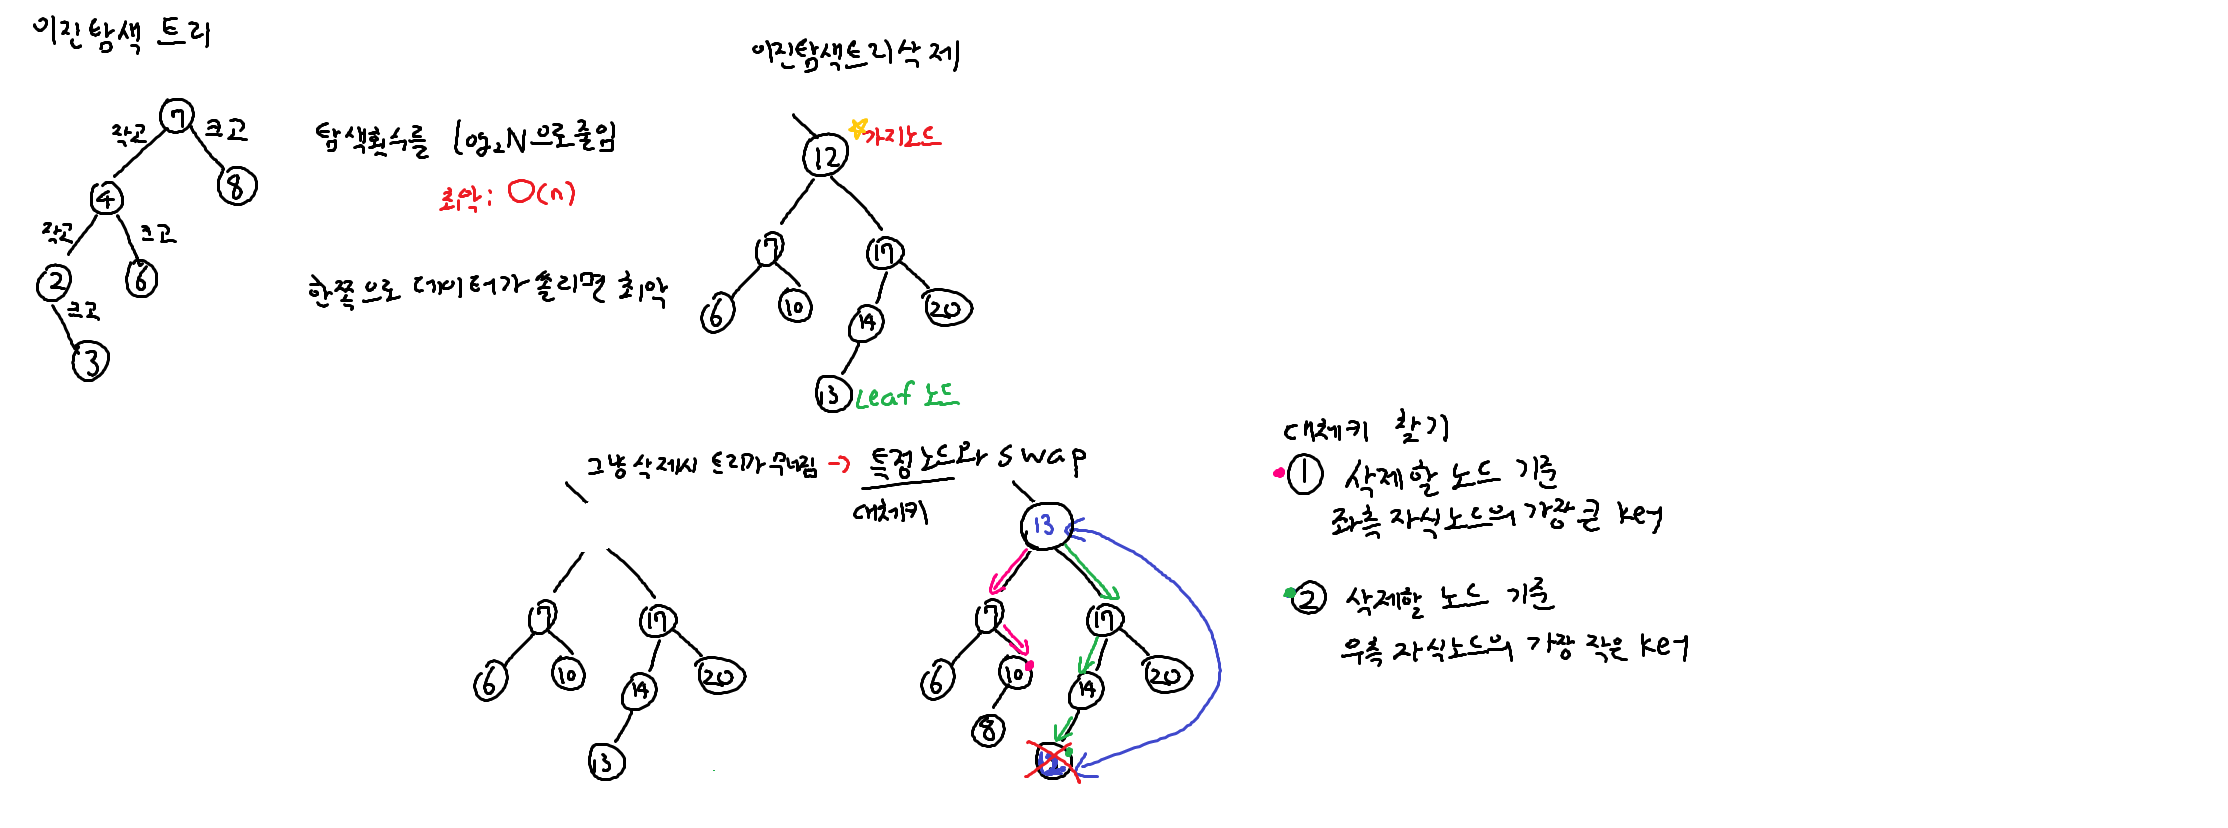 이진탐색 트리
7
작고
크고
4
8
작고
크고
2
6
크고
3
탐색횟수를 log₂N으로줄임
최악: O(n)
한쪽으로 데이터가 쏠리면 최악
이진탐색트리삭제
12
가지노드
7
17
6
10
14
20
13
Leaf 노드
그냥 삭제시 트리가 무너짐 → 특정노드와 swap
대체키
7
17
6
10
14
20
13
13
7
17
6
10
14
20
8
12
대체키 찾기
① 삭제할 노드 기준
좌측 자식노드의 가장 큰 key
② 삭제할 노드 기준
우측 자식노드의 가장 작은 key